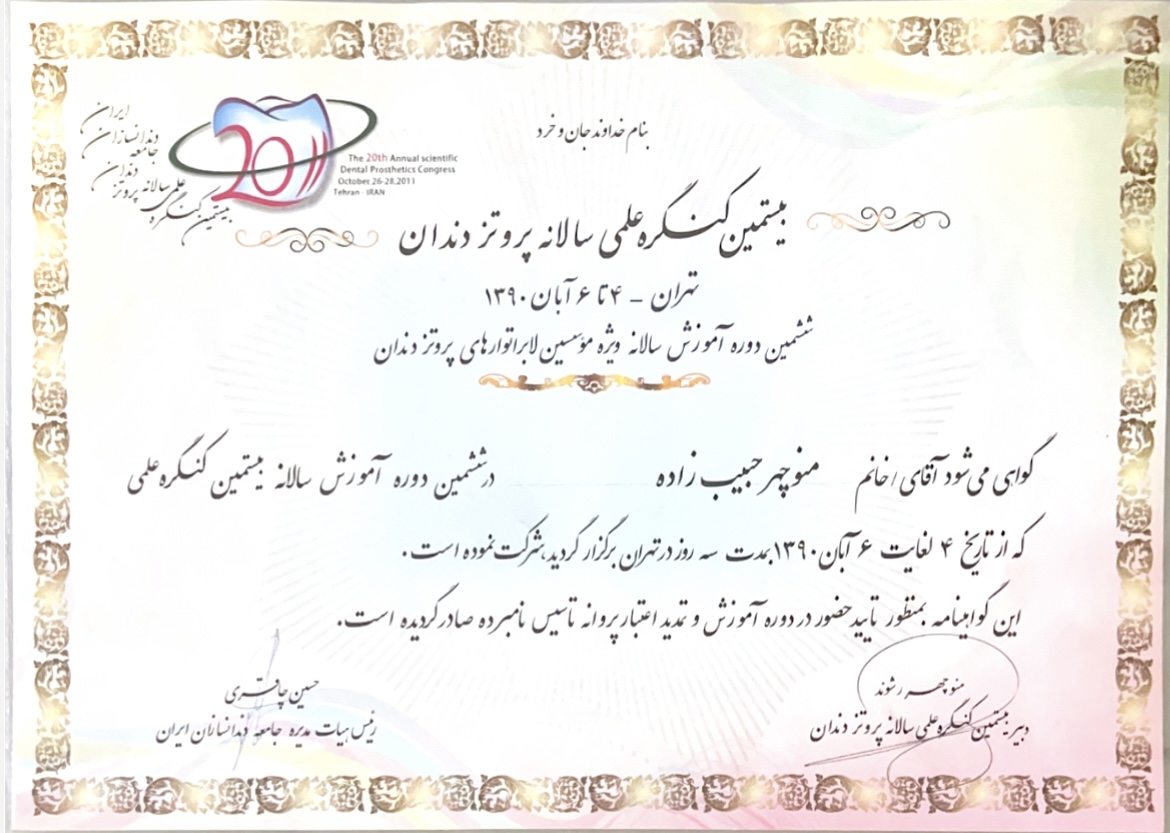 بنام خداوند جان و خرد
ایران
دندانسازان
جامعه
دندان
علمی سالانه پروتز
بیستمین کنگره
20
The 20th Annual scientific
Dental Prosthetics Congress
October.26-28.2011
Tehran - IRAN
بیستمین کنگره علمی سالانه پروتز دندان
تهران - ۴ تا ۶ آبان ۱۳۹۰
ششمین دوره آموزش سالانه ویژه مؤسسین لابراتوارهای پروتز دندان
گواهی می‌شود آقای / خانم منوچهر حبیب زاده در ششمین دوره آموزش سالانه بیستمین کنگره علمی
که از تاریخ ۴ لغایت ۶ آبان ۱۳۹۰ بمدت سه روز در تهران برگزار گردید، شرکت نموده است.
این گواهینامه بمنظور تایید حضور در دوره آموزش و تمدید اعتبار پروانه تاسیس نامبرده صادر گردیده است.
منوچهر رشوند
دبیر بیستمین کنگره علمی سالانه پروتز دندان
حسین
رئیس هیات مدیره جامعه دندانسازان ایران